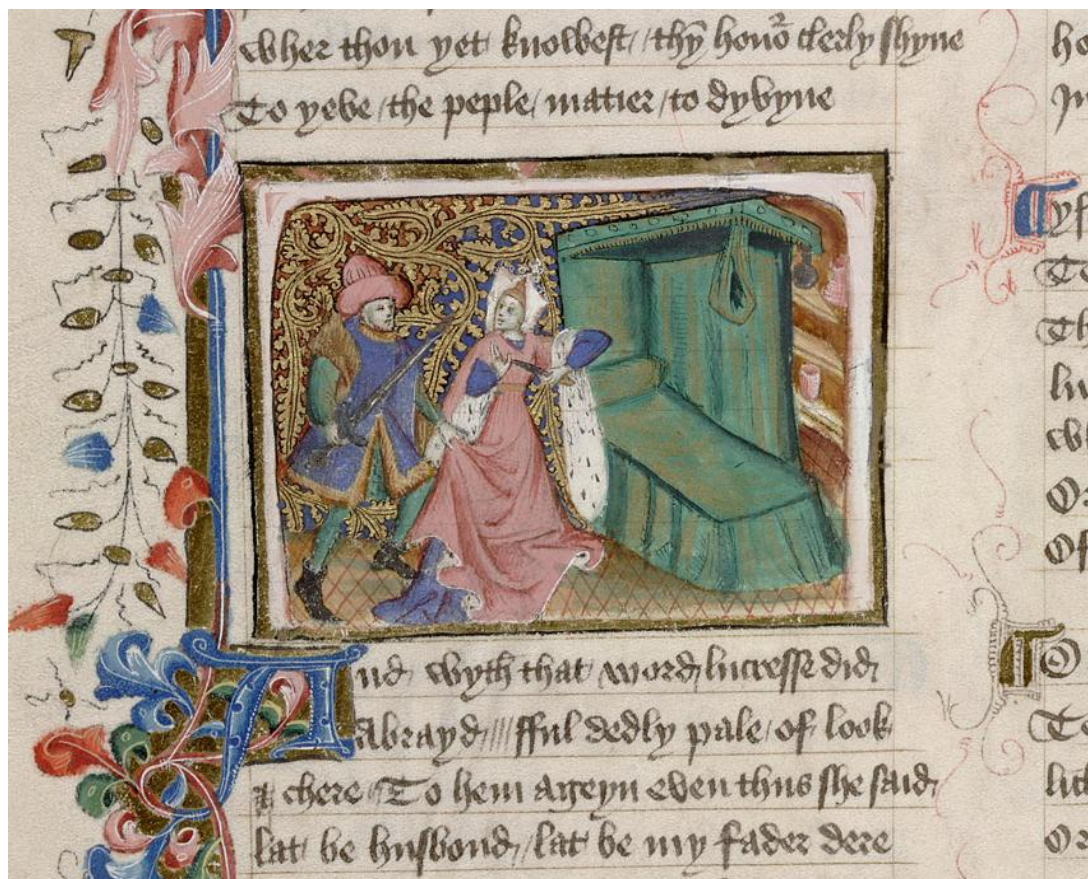 wher thou yet knowest / thy hono clerly shyne
To yeve / the peple / matier / to dyvyne
And wyth that word lucresse did
Abrayd //// fful dedly pale / of look
chere To hem ageyn even thus she said
lat be husbond / lat be my fader dere
ho
Tyf
To
Th
Of
TO
To
Or